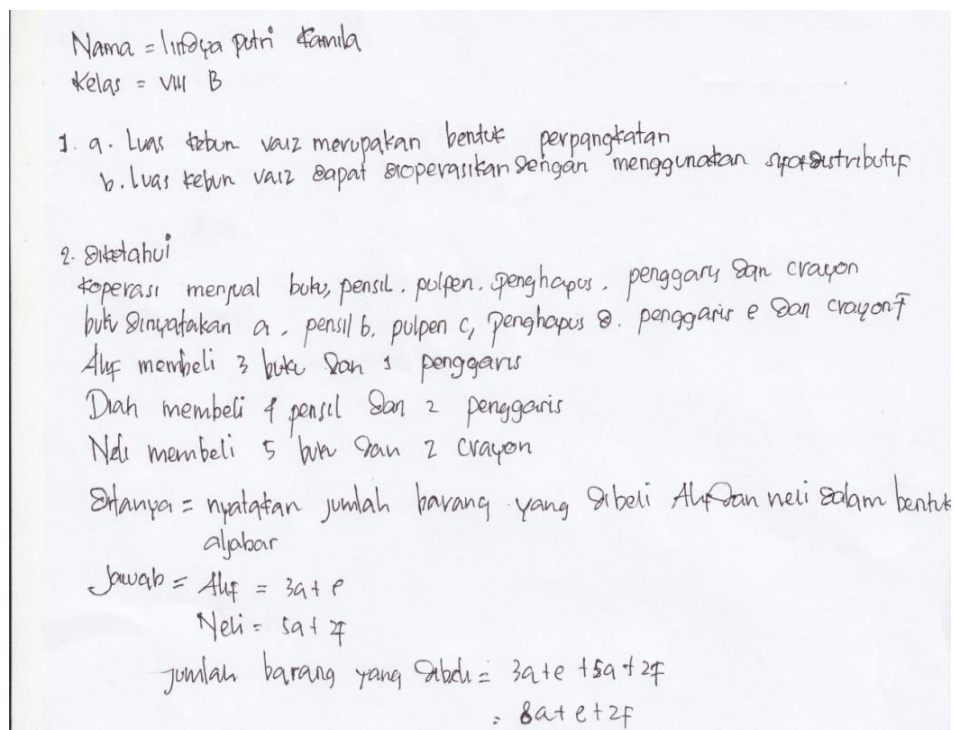 Nama = lindya putri kamila
Kelas = VIII B
1. a. Luas kebun vaiz merupakan bentuk perpangkatan
b. Luas kebun vaiz dapat dioperasikan dengan menggunakan sifat distributif
2. Diketahui
Koperasi menjual buku, pensil, pulpen, penghapus, penggaris dan crayon
buku dinyatakan a, pensil b, pulpen c, penghapus d, penggaris e dan crayon f
Alif membeli 3 buku dan 1 penggaris
Diah membeli 4 pensil dan 2 penggaris
Neli membeli 5 buku dan 2 crayon
Ditanya = nyatakan jumlah barang yang dibeli Alif dan neli dalam bentuk
aljabar
Jawab = Alif = 3a + e
Neli = 5a + 2f
jumlah barang yang dibeli = 3a + e + 5a + 2f
= 8a + e + 2f